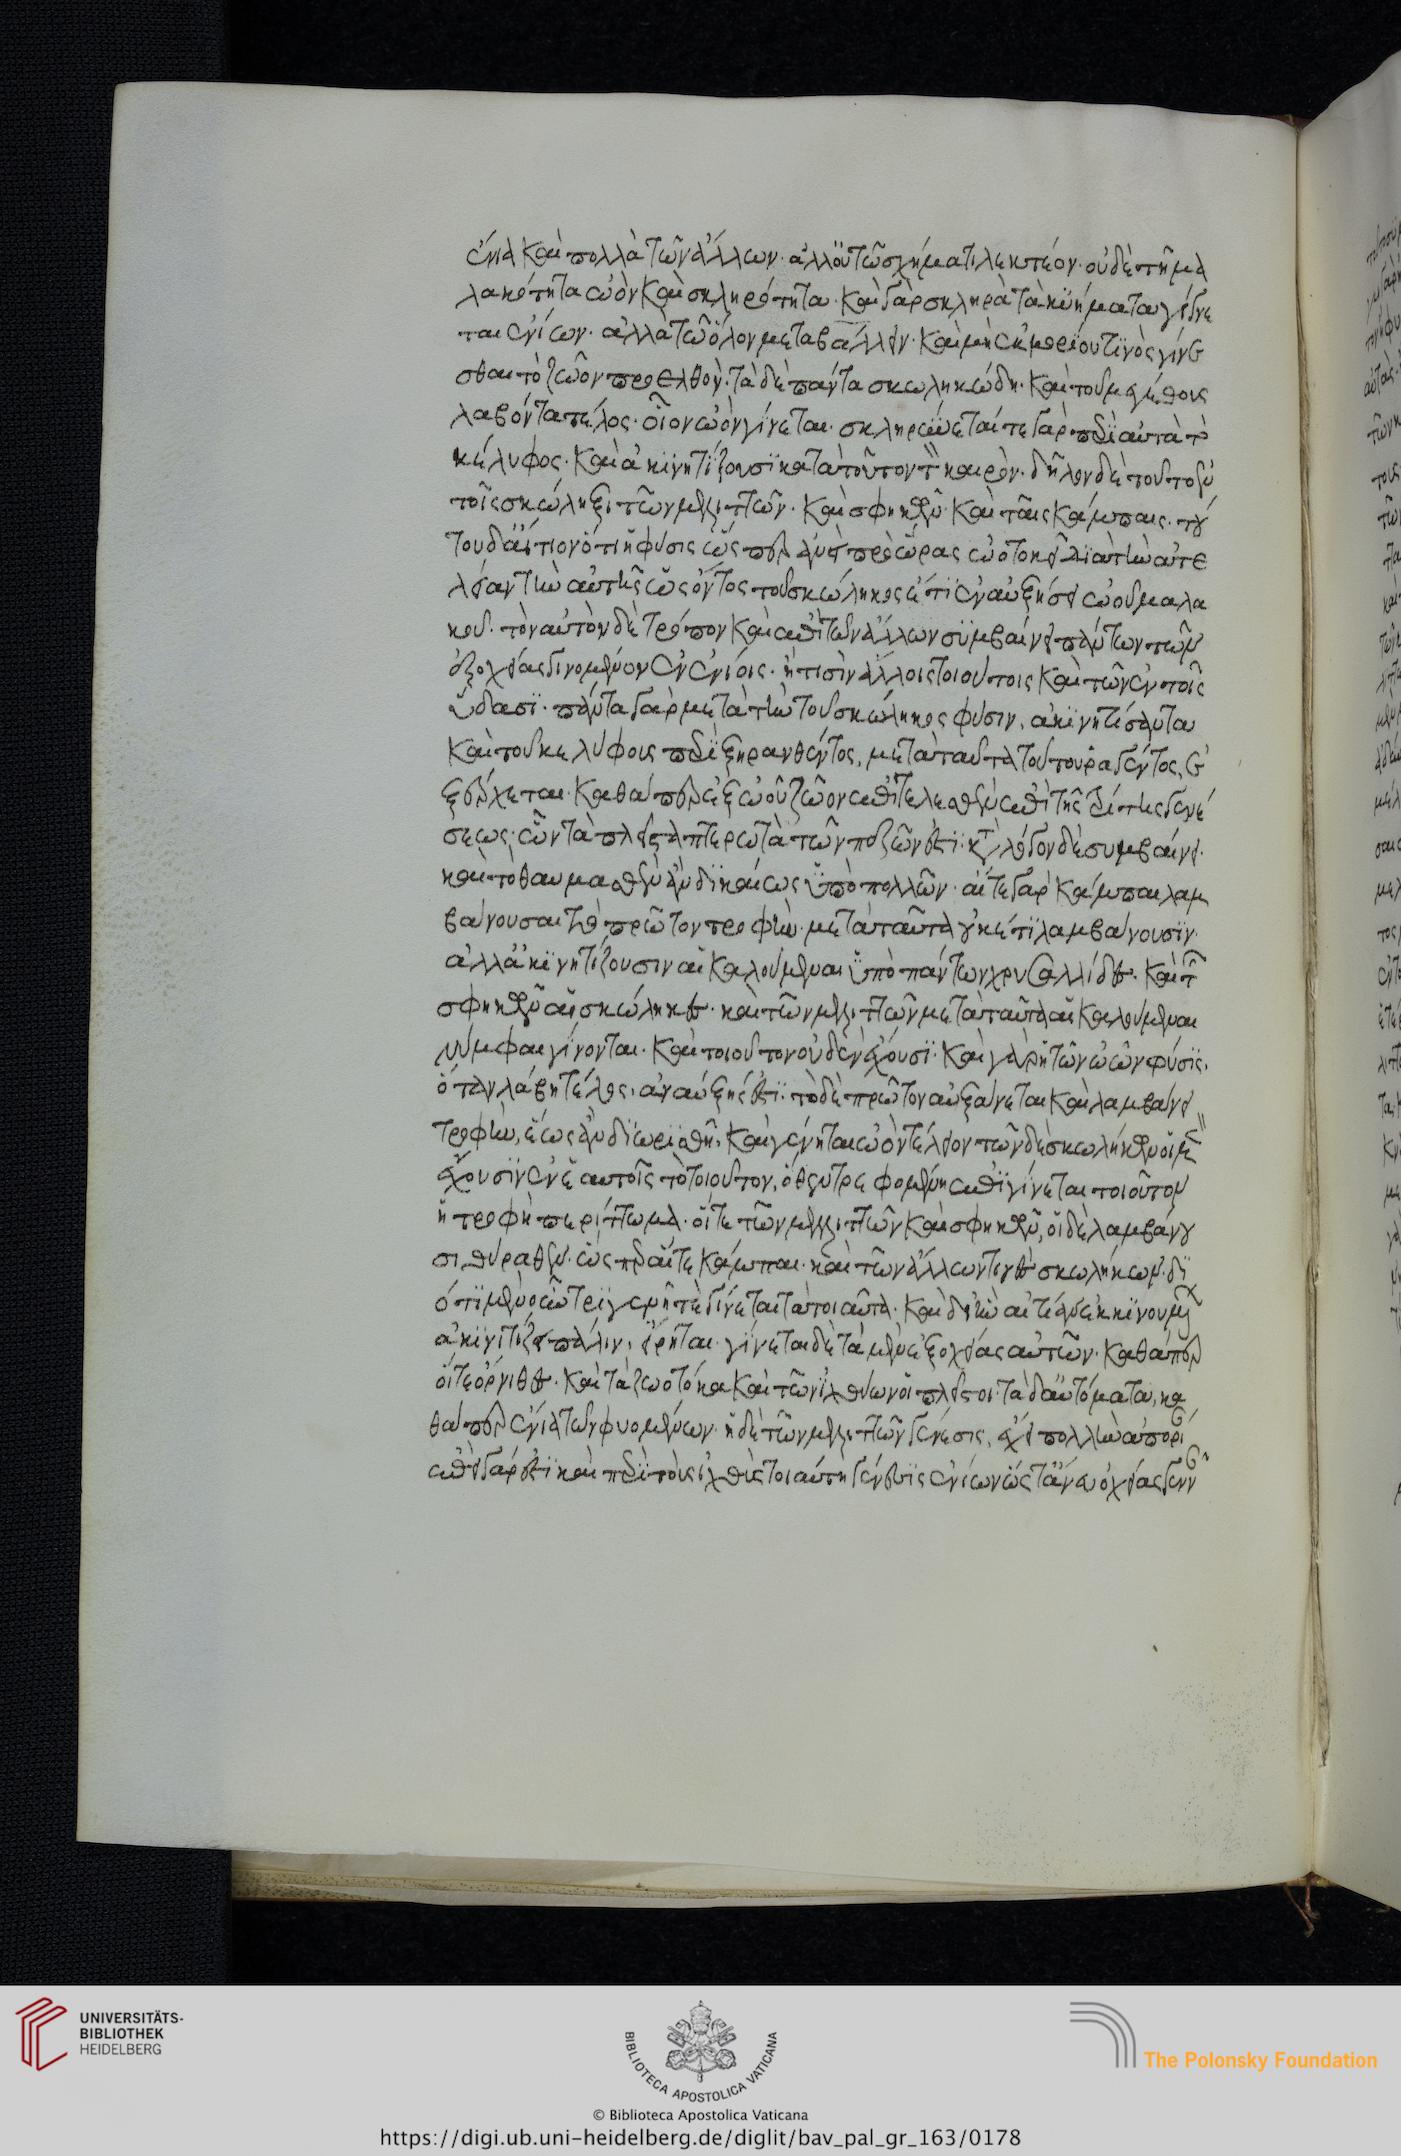 ἔνια καὶ πολλὰ τῶν ἄλλων. ἀλλ' οὐ τῷ σχήματι λεκτέον. οὐδὲ τῇ μα
λακότητα ὠὸν καὶ σκληρότητα. καὶ γὰρ σκληρὰ τὰ κυήματα γίγνε
ται ἐνίων. ἀλλὰ τῷ ὅλον μεταβάλλειν. καὶ μὴ ἐκ μορίου τινὸς γίνε
σθαι τὸ ζῷον προελθὸν. τὰ δὲ πάντα σκωληκώδη. καὶ τοῦ μεγέθους
λαβόντα τέλος. οἷον ὠὸν γίνεται. σκληρύνεταί τε γὰρ περὶ αὐτὰ τὸ
κέλυφος. καὶ ἀκινητίζουσι κατὰ τοῦτον τὸν καιρὸν. δῆλον δὲ τοῦτο ἐν
τοῖς σκώληξι τῶν μελιττῶν. καὶ σφηκῶν καὶ ταῖς κάμπαις. τού
του δ' αἴτιον ὅτι ἡ φύσις ὥσπερ ἂν εἰ πρὸ ὥρας ὠοτοκεῖ διὰ τὴν ἀτέ
λειαν τὴν αὐτῆς ὡς ὄντος τοῦ σκώληκος ἔτι ἐν αὐξήσει ὠοῦ μαλα
κοῦ. τὸν αὐτὸν δὲ τρόπον καὶ ἐπὶ τῶν ἄλλων συμβαίνει πάντων τῶν
ἐξ ὀχείας γινομένων ἐν ἐρίοις. ἤ τισιν ἄλλοις τοιούτοις καὶ τῶν ἐν τοῖς
ὕδασι. πάντα γὰρ μετὰ τὴν τοῦ σκώληκος φύσιν, ἀκινητίσαντα
καὶ τοῦ κελύφους περιξηρανθέντος, μετὰ ταῦτα τούτου ῥαγέντος, ἐ
ξέρχεται. καθάπερ ἐξ ὠοῦ ζῷον ἐπιτελεσθὲν ἐπὶ τῆς τρίτης γενέ
σεως. ὧν τὰ πλεῖστα πτερωτὰ τῶν πεζῶν ἐστι. κατὰ λόγον δὲ συμβαίνει.
καὶ τὸ θαυμασθὲν ἂν δικαίως ὑπὸ πολλῶν. αἵ τε γὰρ κάμπαι λαμ
βάνουσαι τὸ πρῶτον τροφὴν. μετὰ ταῦτα οὐκέτι λαμβάνουσιν.
ἀλλ' ἀκινητίζουσιν αἱ καλούμεναι ὑπὸ πάντων χρυσαλλίδες. καὶ τῶν
σφηκῶν αἱ σκώληκες. καὶ τῶν μελιττῶν μετὰ ταῦτα αἱ καλούμεναι
νύμφαι γίνονται. καὶ τοιοῦτον οὐδὲν ἔχουσι. καὶ γὰρ ἡ τῶν ὠῶν φύσις,
ὅταν λάβῃ τέλος, ἀναυξής ἐστι. τὸ δὲ πρῶτον αὐξάνεται καὶ λαμβάνει
τροφὴν, ἕως ἂν διορισθῇ, καὶ γένηται ὠὸν τέλειον τῶν δὲ σκωλήκων οἱ μὲν
ἔχουσιν ἐν ἑαυτοῖς τὸ τοιοῦτον, ὅθεν τρεφομένοις ἐπιγίνεται τοιοῦτον
ἡ τροφὴ περίττωμα. οἵ τε τῶν μελιττῶν καὶ σφηκῶν, οἱ δὲ λαμβάνου
σι θύραθεν. ὥσπερ αἵ τε κάμπαι. καὶ τῶν ἄλλων τινὲς σκωλήκων. δι
ότι μὲν οὖν τριγενῆ τε γίνεται τὰ τοιαῦτα. καὶ δι' ἣν αἰτίαν ἐκ κινουμένων
ἀκινητίζει πάλιν, εἴρηται. γίνεται δὲ τὰ μὲν ἐξ ὀχείας αὐτῶν. καθάπερ
οἵ τε ὄρνιθες. καὶ τὰ ζωοτόκα καὶ τῶν ἰχθύων οἱ πλεῖστοι. τὰ δ' αὐτόματα, κα
θάπερ ἔνια τῶν φυομένων. ἡ δὲ τῶν μελιττῶν γένεσις, ἔχει πολλὴν ἀπορί
ἐπεὶ γάρ ἐστι καὶ περὶ τοὺς ἰχθῦς τοιαύτη γένεσις ἐνίων ὥστ' ἄνευ ὀχείας γενν
UNIVERSITÄTS-
BIBLIOTHEK
HEIDELBERG
BIBLIOTECA APOSTOLICA VATICANA
© Biblioteca Apostolica Vaticana
The Polonsky Foundation
https://digi.ub.uni-heidelberg.de/diglit/bav_pal_gr_163/0178